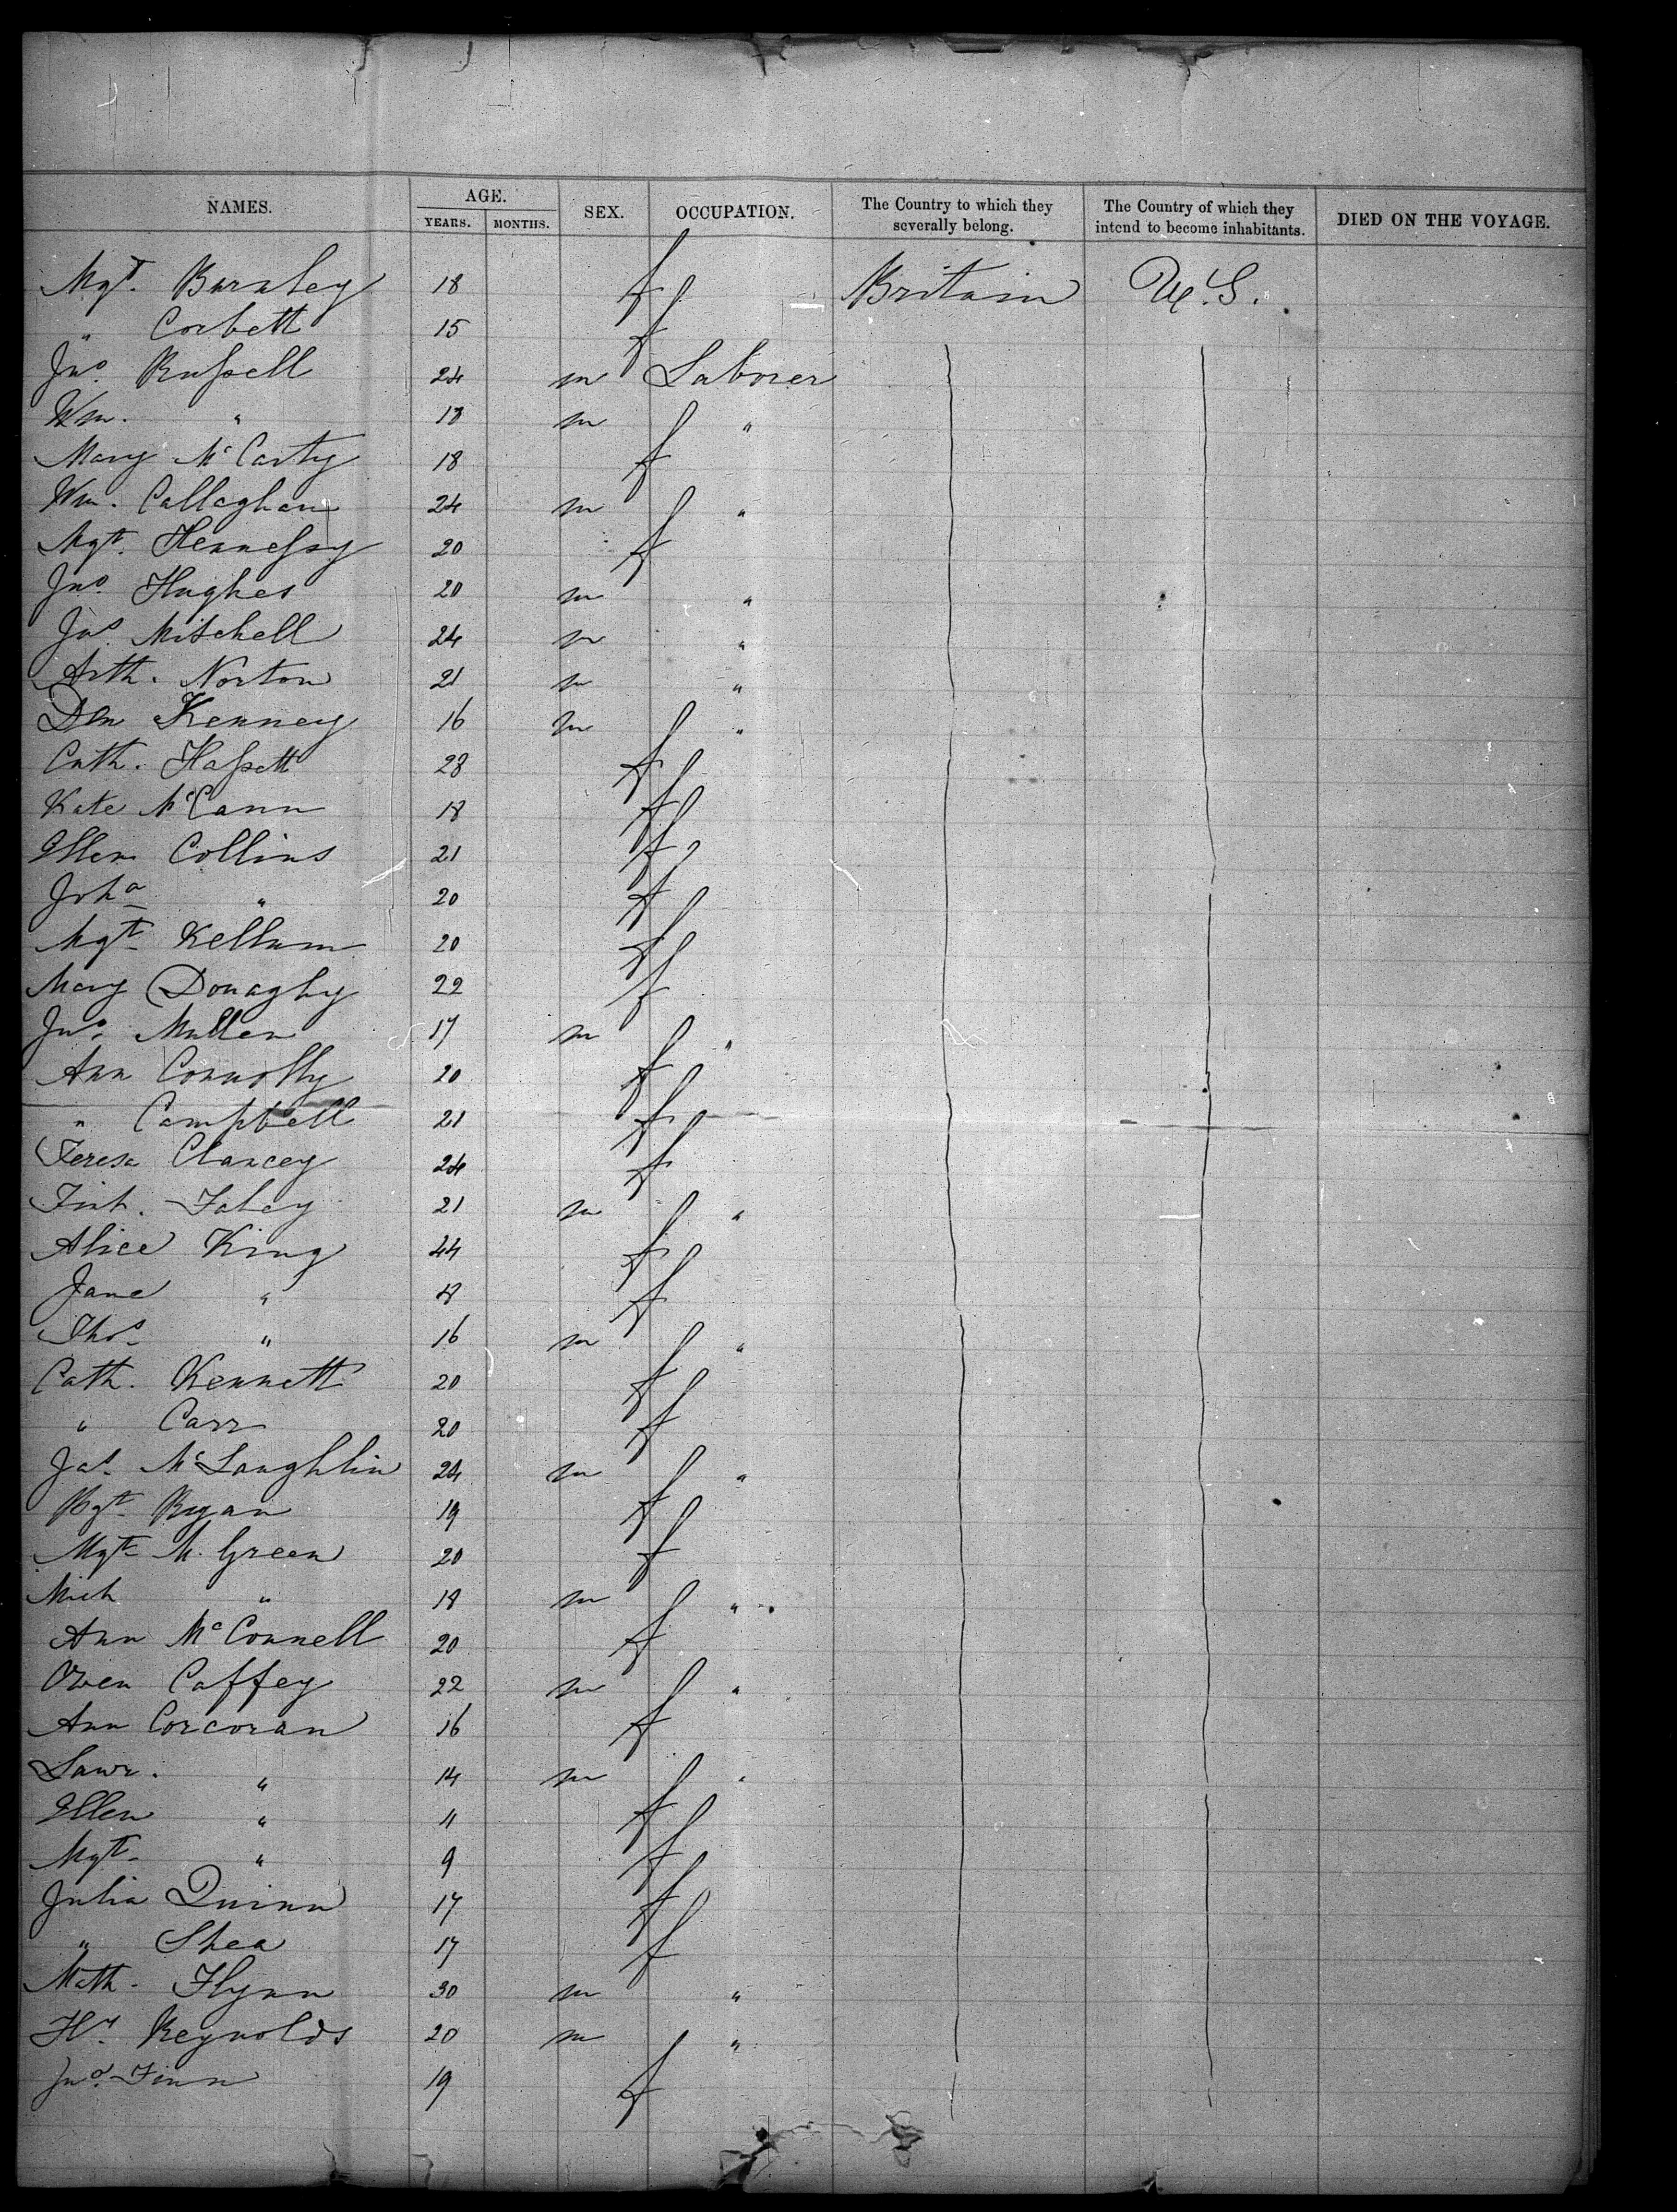 NAMES. AGE. SEX. OCCUPATION. The Country to which they severally belong. The Country of which they intend to become inhabitants. DIED ON THE VOYAGE.
YEARS. MONTHS.
Mgt. Burnley 18 f Britain U.S.
" Corbett 15 f
Jno. Russell 24 m Laborer
Wm. " 18 m "
Mary McCarty 18 f
Wm. Callaghan 24 m "
Mgt. Hennessy 20 f
Jno. Hughes 20 m "
Jas. Mitchell 24 m "
Arth. Norton 21 m "
Den Kenney 16 m "
Cath. Hassett 28 f
Kate McCann 18 f
Ellen Collins 21 f
Joha " 20 f
Mgt. Kellum 20 f
Mary Donaghy 22 f
Jno. Mullen 17 m "
Ann Connolly 20 f
" Campbell 21 f
Teresa Clancey 24 f
Fint. Fahey 21 m "
Alice King 44 f
Jane " f
Thos. " 16 m "
Cath. Kennett 20 f
" Carr 20 f
Jas. McLaughlin 24 m "
Bgt. Ryan 19 f
Mgt. M. Green 20 f
Mich " 18 m "
Ann McConnell 20 f
Owen Caffey 22 m "
Ann Corcoran 16 f
Lawr. " 14 m "
Ellen " 11 f
Mgt. " 9 f
Julia Quinn 17 f
" Shea 17 f
Math. Flynn 30 m "
Hy. Reynolds 20 m "
Jno. Finn 19 f